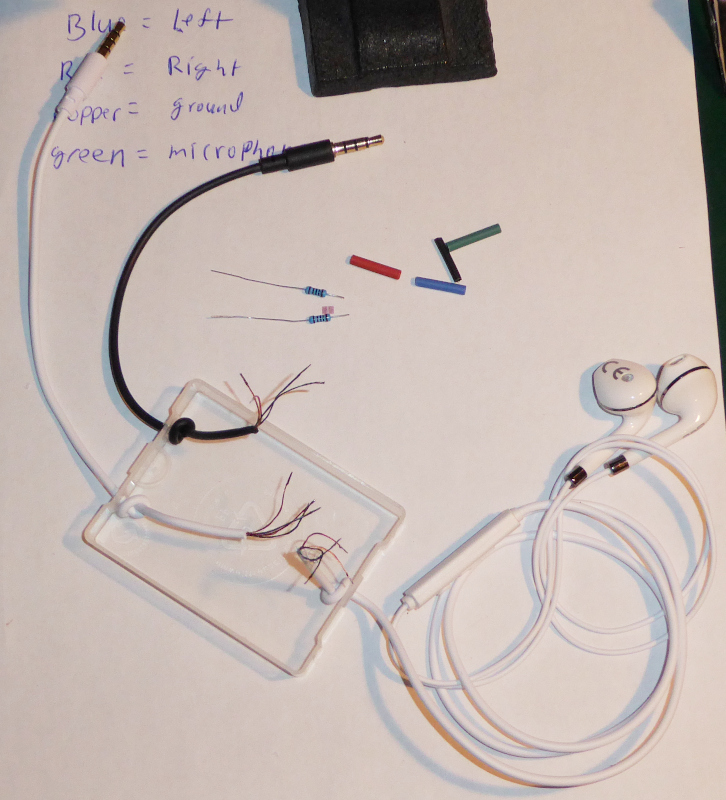 Blue = Left
= Right
copper = ground
green = microphone
CE